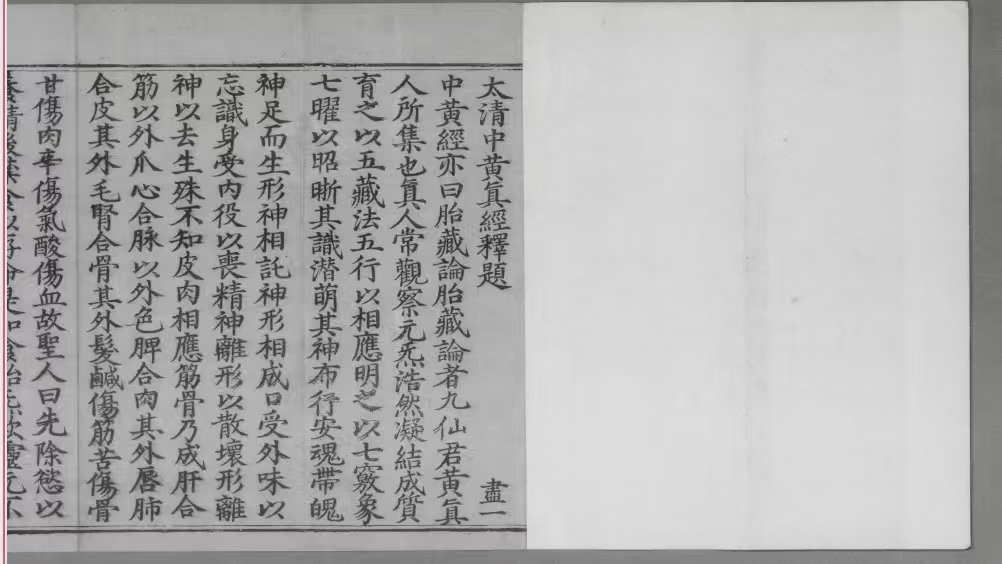 太清中黃眞經釋題 盡一
中黃經亦曰胎藏論胎藏論者九仙君黃眞
人所集也眞人常觀察元炁浩然凝結成質
育之以五藏法五行以相應明之以七竅象
七曜以昭晣其識潛萌其神布行安魂帶魄
神足而生形神相託神形相成口受外味以
忘識身受內役以喪精神離形以散壞形離
神以去生殊不知皮肉相應筋骨乃成肝合
筋以外爪心合脉以外色脾合肉其外唇肺
合皮其外毛腎合骨其外髮鹹傷筋苦傷骨
甘傷肉辛傷氣酸傷血故聖人曰先除慾以